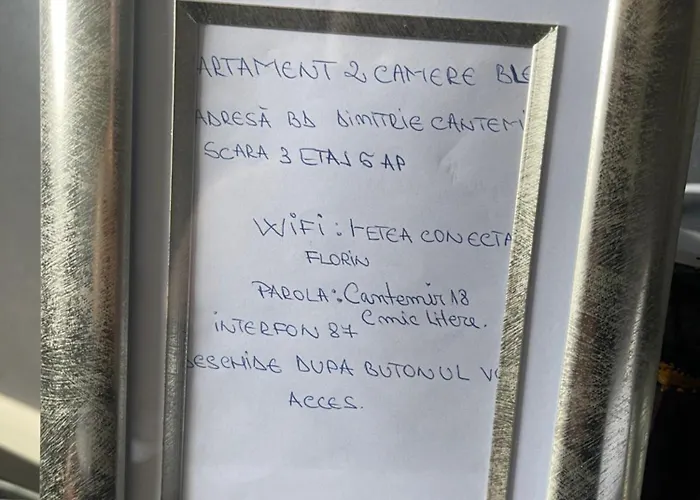 ARTAMENT 2 CAMERE BLO
ADRESĂ BD DIMITRIE CANTEMI
SCARA 3 ETAJ 6 AP
WIFI: REȚEA CONECTA
FLORIN
PAROLA: Cantemir18
C mic litere.
INTERFON 87
DESCHIDE DUPA BUTONUL
ACCES.